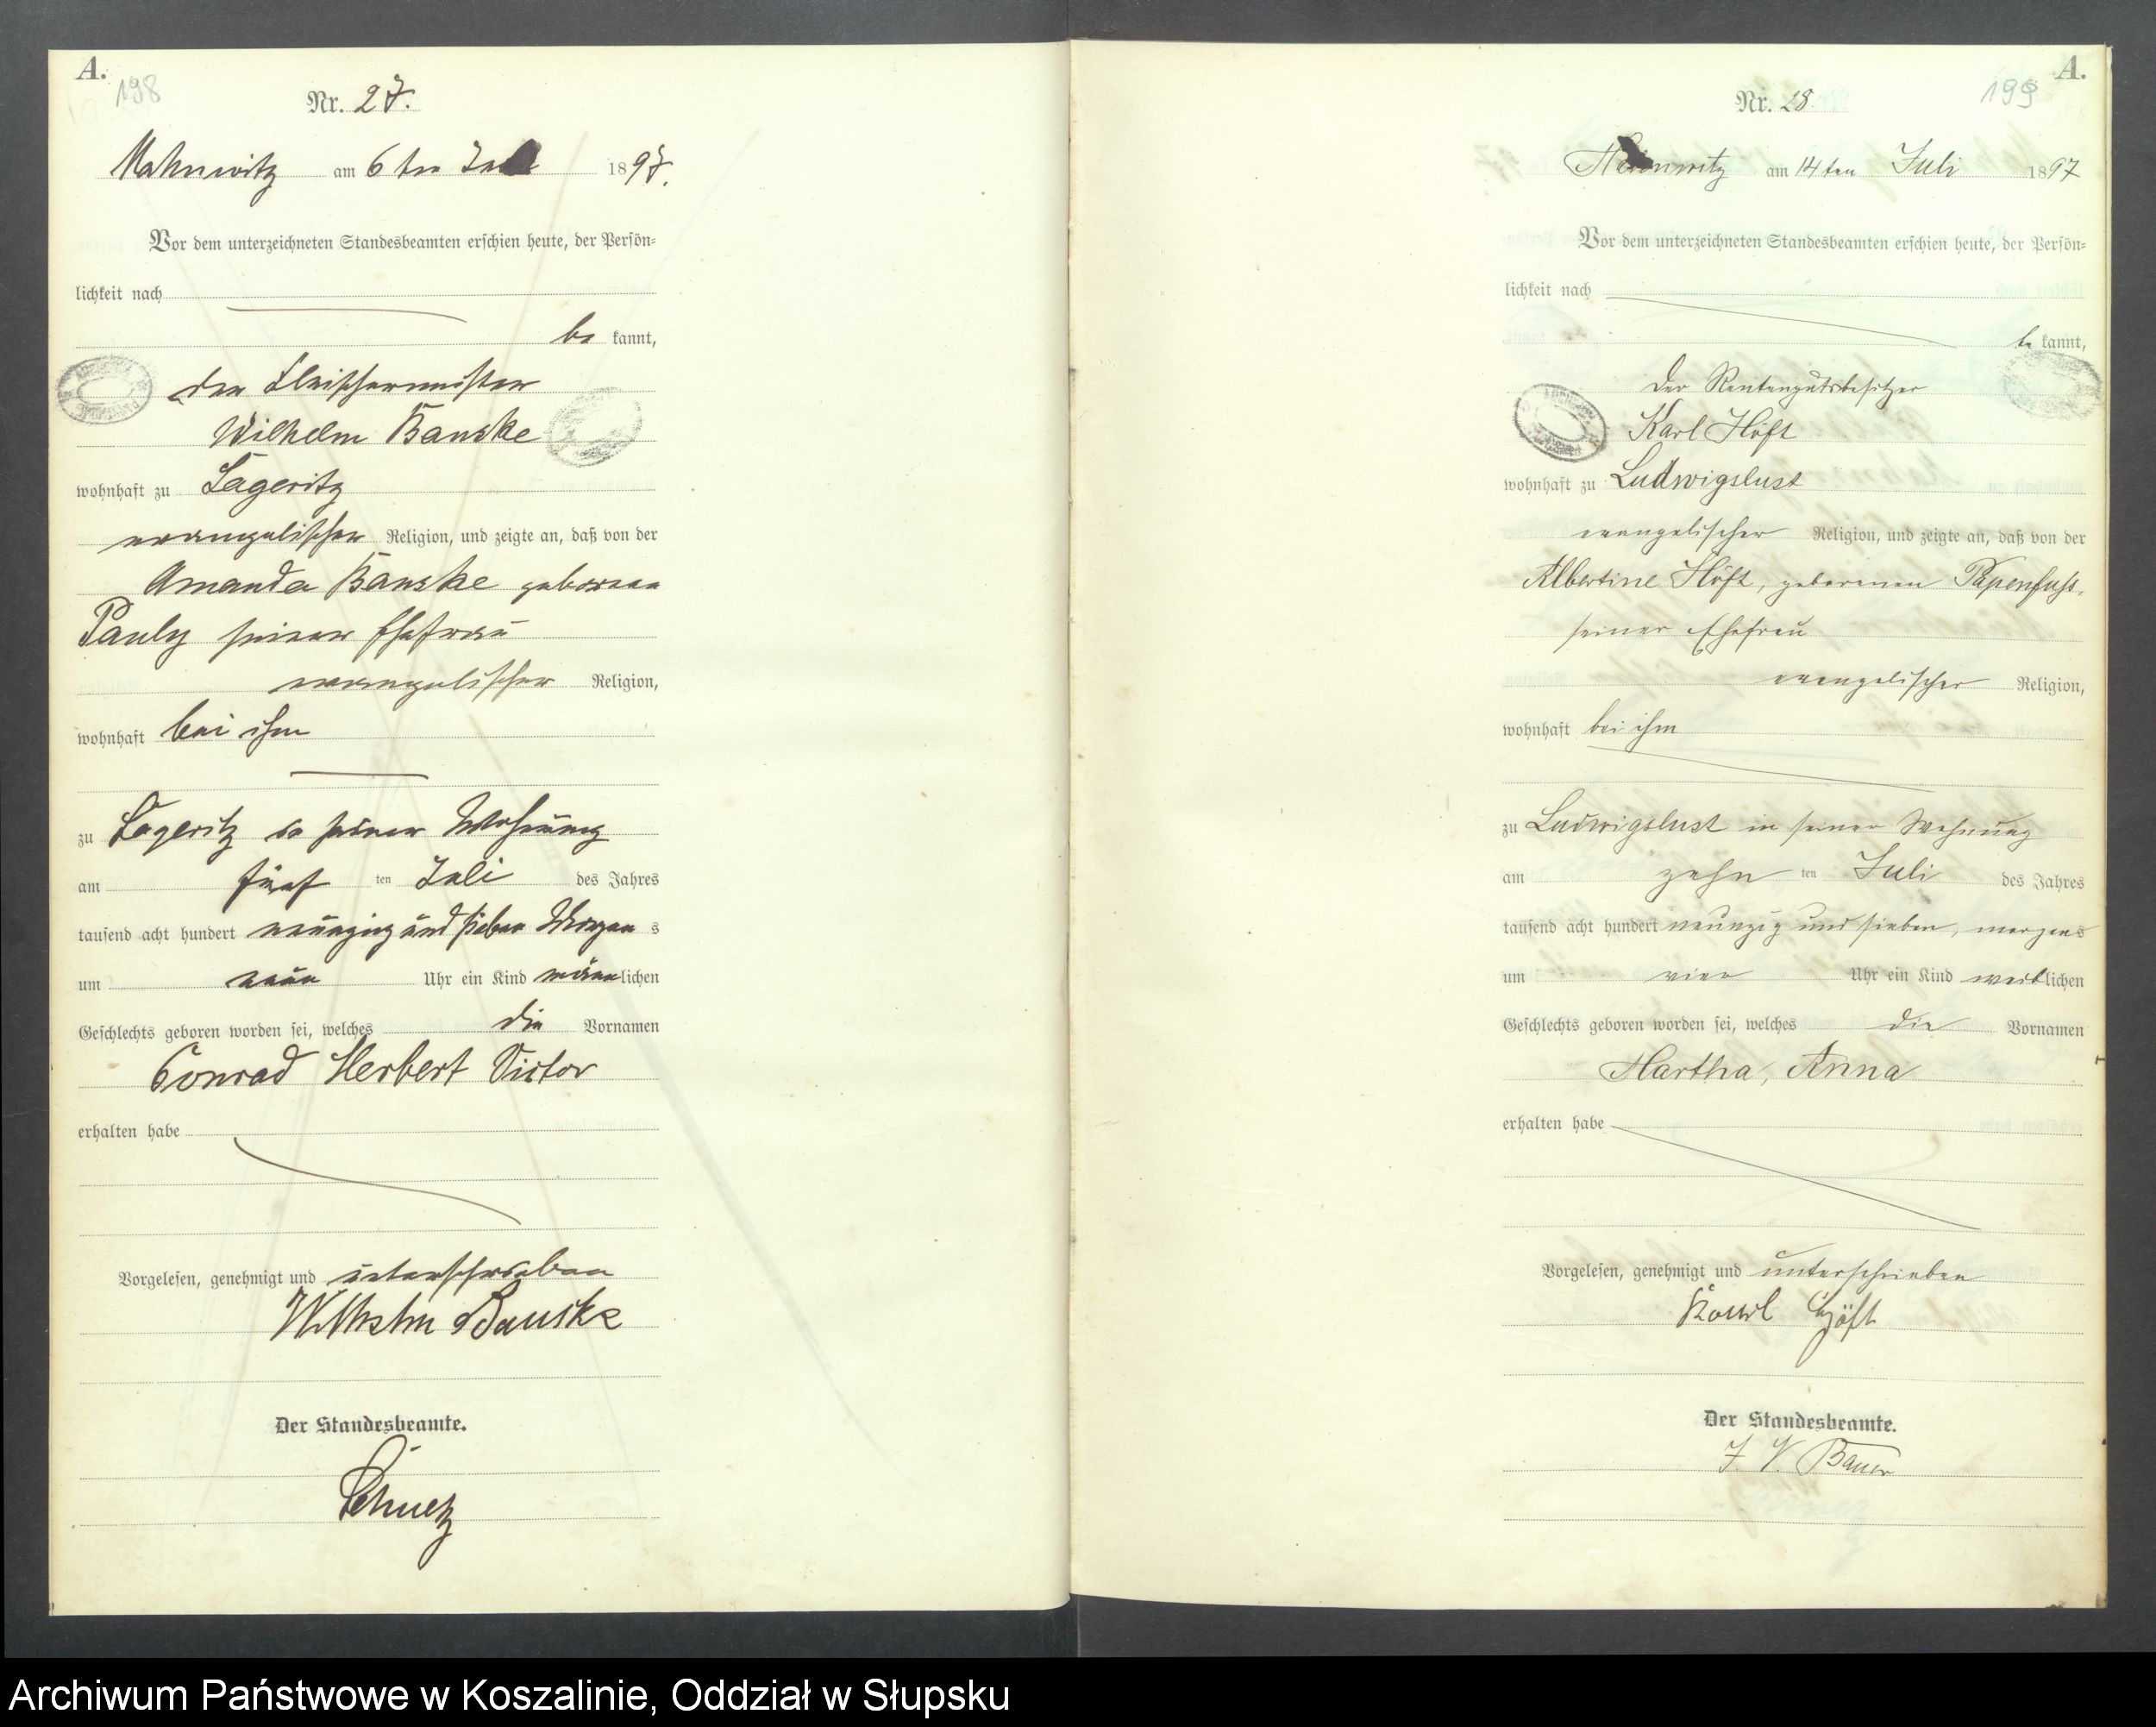 A.
198
Nr. 27.
Mahnwitz am 6 ten 1897.
Vor dem unterzeichneten Standesbeamten erschien heute, der Persön-
lichkeit nach
be kannt,
der Fleischermeister
Wilhelm Banske
wohnhaft zu Labehn
evangelischer Religion, und zeigte an, daß von der
Amanda Banske geborenen
Pauly seiner Ehefrau
evangelischer Religion,
wohnhaft bei ihm
zu in seiner Wohnung
am fünf ten Juli des Jahres
tausend acht hundert neunzig und sieben Morgen s
um neun Uhr ein Kind männlichen
Geschlechts geboren worden sei, welches die Vornamen
Conrad Herbert Victor
erhalten habe
Vorgelesen, genehmigt und unterschrieben
Wilhelm Banske
Der Standesbeamte.
A.
199
Nr. 28
am 14ten Juli 1897
Vor dem unterzeichneten Standesbeamten erschien heute, der Persön-
lichkeit nach
be kannt,
der Rentengutsbesitzer
Karl Höft
wohnhaft zu Ludwigslust
evangelischer Religion, und zeigte an, daß von der
Albertine Höft, geborenen Papenfuß,
seiner Ehefrau
evangelischer Religion,
wohnhaft bei ihm
zu Ludwigslust in seiner Wohnung
am zehn ten Juli des Jahres
tausend acht hundert neunzig und sieben, morgens
um vier Uhr ein Kind weiblichen
Geschlechts geboren worden sei, welches die Vornamen
Martha, Anna
erhalten habe
Vorgelesen, genehmigt und unterschrieben
Karl Höft
Der Standesbeamte.
J. V. Bauer
Archiwum Państwowe w Koszalinie, Oddział w Słupsku